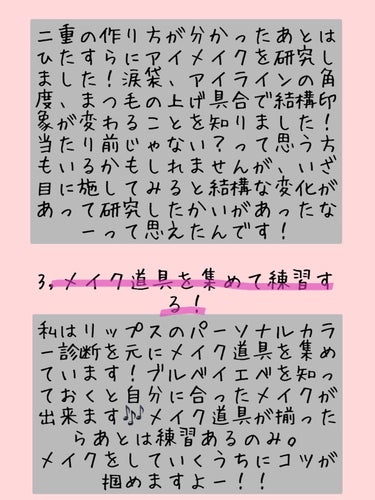 二重の作り方が分かったあとは
ひたすらにアイメイクを研究し
ました！涙袋、アイラインの角
度、まつ毛の上げ具合で結構印
象が変わることを知りました！
当たり前じゃない？って思う方
もいるかもしれませんが、いざ
目に施してみると結構な変化が
あって研究したかいがあったな
ーって思えたんです！
3,メイク道具を集めて練習す
る！
私はリップスのパーソナルカラ
ー診断を元にメイク道具を集め
ています！ブルベイエベを知っ
ておくと自分に合ったメイクが
出来ます🎶メイク道具が揃った
らあとは練習あるのみ。
メイクをしていくうちにコツが
掴めますよー！！